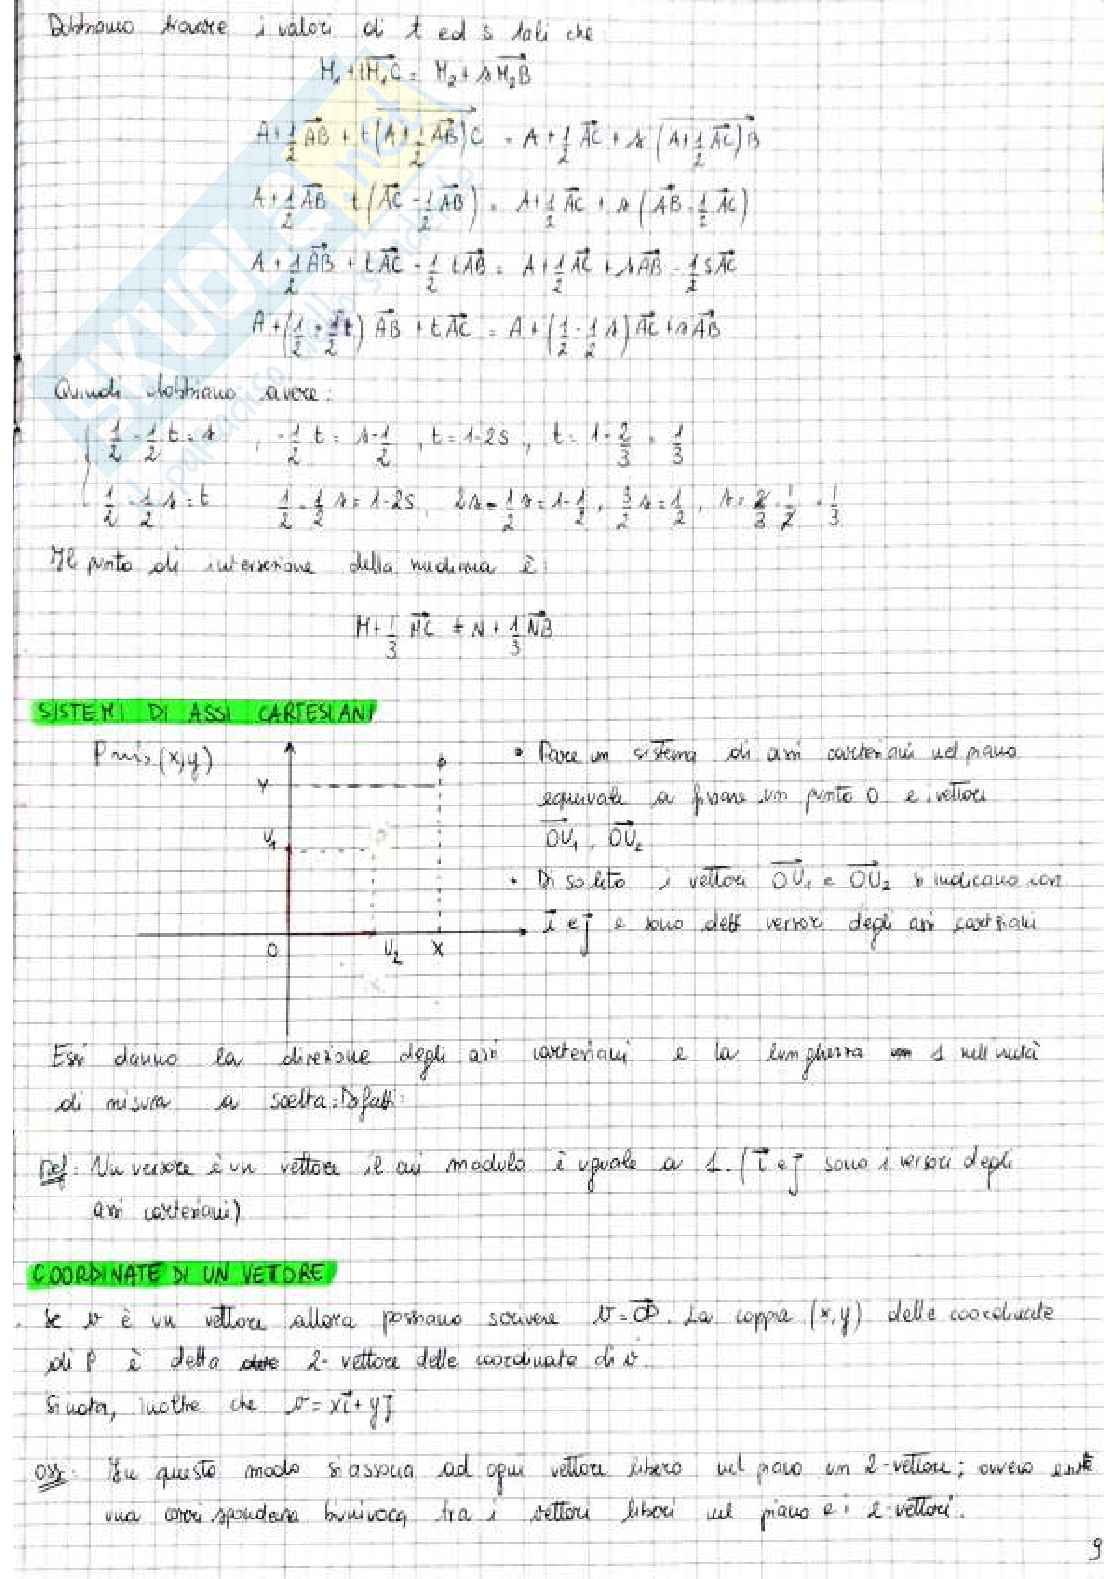 Dobbiamo trovare i valori di t ed s tali che
M₁ + tM₁C = M₂ + sM₂B
A + 1/2 AB + t(A + 1/2 AB)C = A + 1/2 AC + s(A + 1/2 AC)B
A + 1/2 AB t(AC - 1/2 AB) = A + 1/2 AC + s(AB - 1/2 AC)
A + 1/2 AB + tAC - 1/2 tAB = A + 1/2 AC + sAB - 1/2 sAC
A + (1/2 - 1/2 t) AB + tAC = A + (1/2 - 1/2 s) AC + sAB
Quindi dobbiamo avere:
1/2 - 1/2 t = s , -1/2 t = s - 1/2 , t = 1 - 2s , t = 1 - 2/3 = 1/3
1/2 - 1/2 s = t 1/2 - 1/2 s = 1 - 2s , 2s - 1/2 s = 1 - 1/2 , 3/2 s = 1/2 , s = 2/3 · 1/2 = 1/3
Il punto di intersezione della mediana è:
M + 1/3 MC = N + 1/3 NB
SISTEMI DI ASSI CARTESIANI
P (x,y)
P
Y
U₁
O U₂ X
• Fare un sistema di assi cartesiani nel piano
equivale a fissare un punto O e vettori
OU₁, OU₂
• Di solito i vettori OU₁ e OU₂ si indicano con
i e j e sono detti versori degli assi cartesiani
Essi danno la direzione degli assi cartesiani e la lunghezza 1 nell'unità
di misura a scelta. Difatti:
Def: Un versore è un vettore il cui modulo è uguale a 1. (i e j sono i versori degli
assi cartesiani)
COORDINATE DI UN VETORE
. Se v è un vettore allora possiamo scrivere v = OP. La coppia (x,y) delle coordinate
di P è detta 2-vettore delle coordinate di v.
Si nota, inoltre che v = xi + yj
Oss: In questo modo si associa ad ogni vettore libero nel piano un 2-vettore; ovvero esiste
una corrispondenza biunivoca tra i vettori liberi nel piano e i 2-vettori.
9
SKUOLA.net